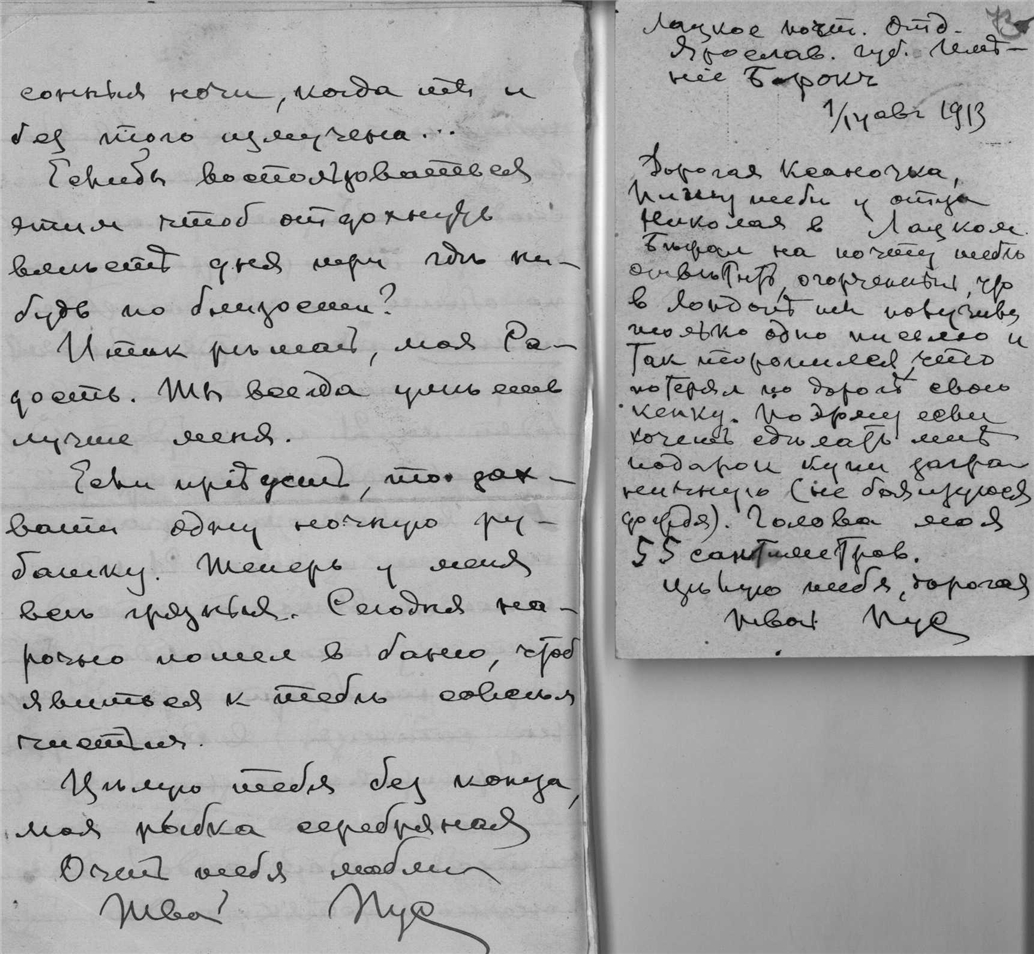 сонныя ночи, когда ты и
без того измучена...
Если бы воспользоваться
этим чтоб отдохнуть
вместѣ дня три гдѣ ни-
будь по близости?
Итак рѣшай, моя Ра-
дость. Ты всегда умнѣе
лучше меня.
Если прiѣдешь, то зах-
вати одну ночную ру-
башку. Теперь у меня
всѣ грязныя. Сегодня на-
рочно пошел в баню, чтоб
явиться к тебѣ совсѣм
чистым.
Цѣлую тебя без конца,
моя рыбка серебряная
Очень тебя люблю
Твой Пус
73
Лацкое почт. Отд.
Ярослав. губ. Имѣ-
нiе Борокъ
1/14 авг 1913
Дорогая Ксаночка,
Пишу тебѣ у отца
Николая в Лацком.
Бѣжал на почту тебѣ
отвѣтить, огорченный, что
в Лондонѣ ты получила
только одно письмо и
так торопился, что
потерял по дорогѣ свою
кепку. По этому если
хочешь сдѣлать мнѣ
подарок купи загра
ничную (не боящуюся
дождя). Голова моя
55 сантиметров.
Цѣлую тебя, дорогая
Твой Пус